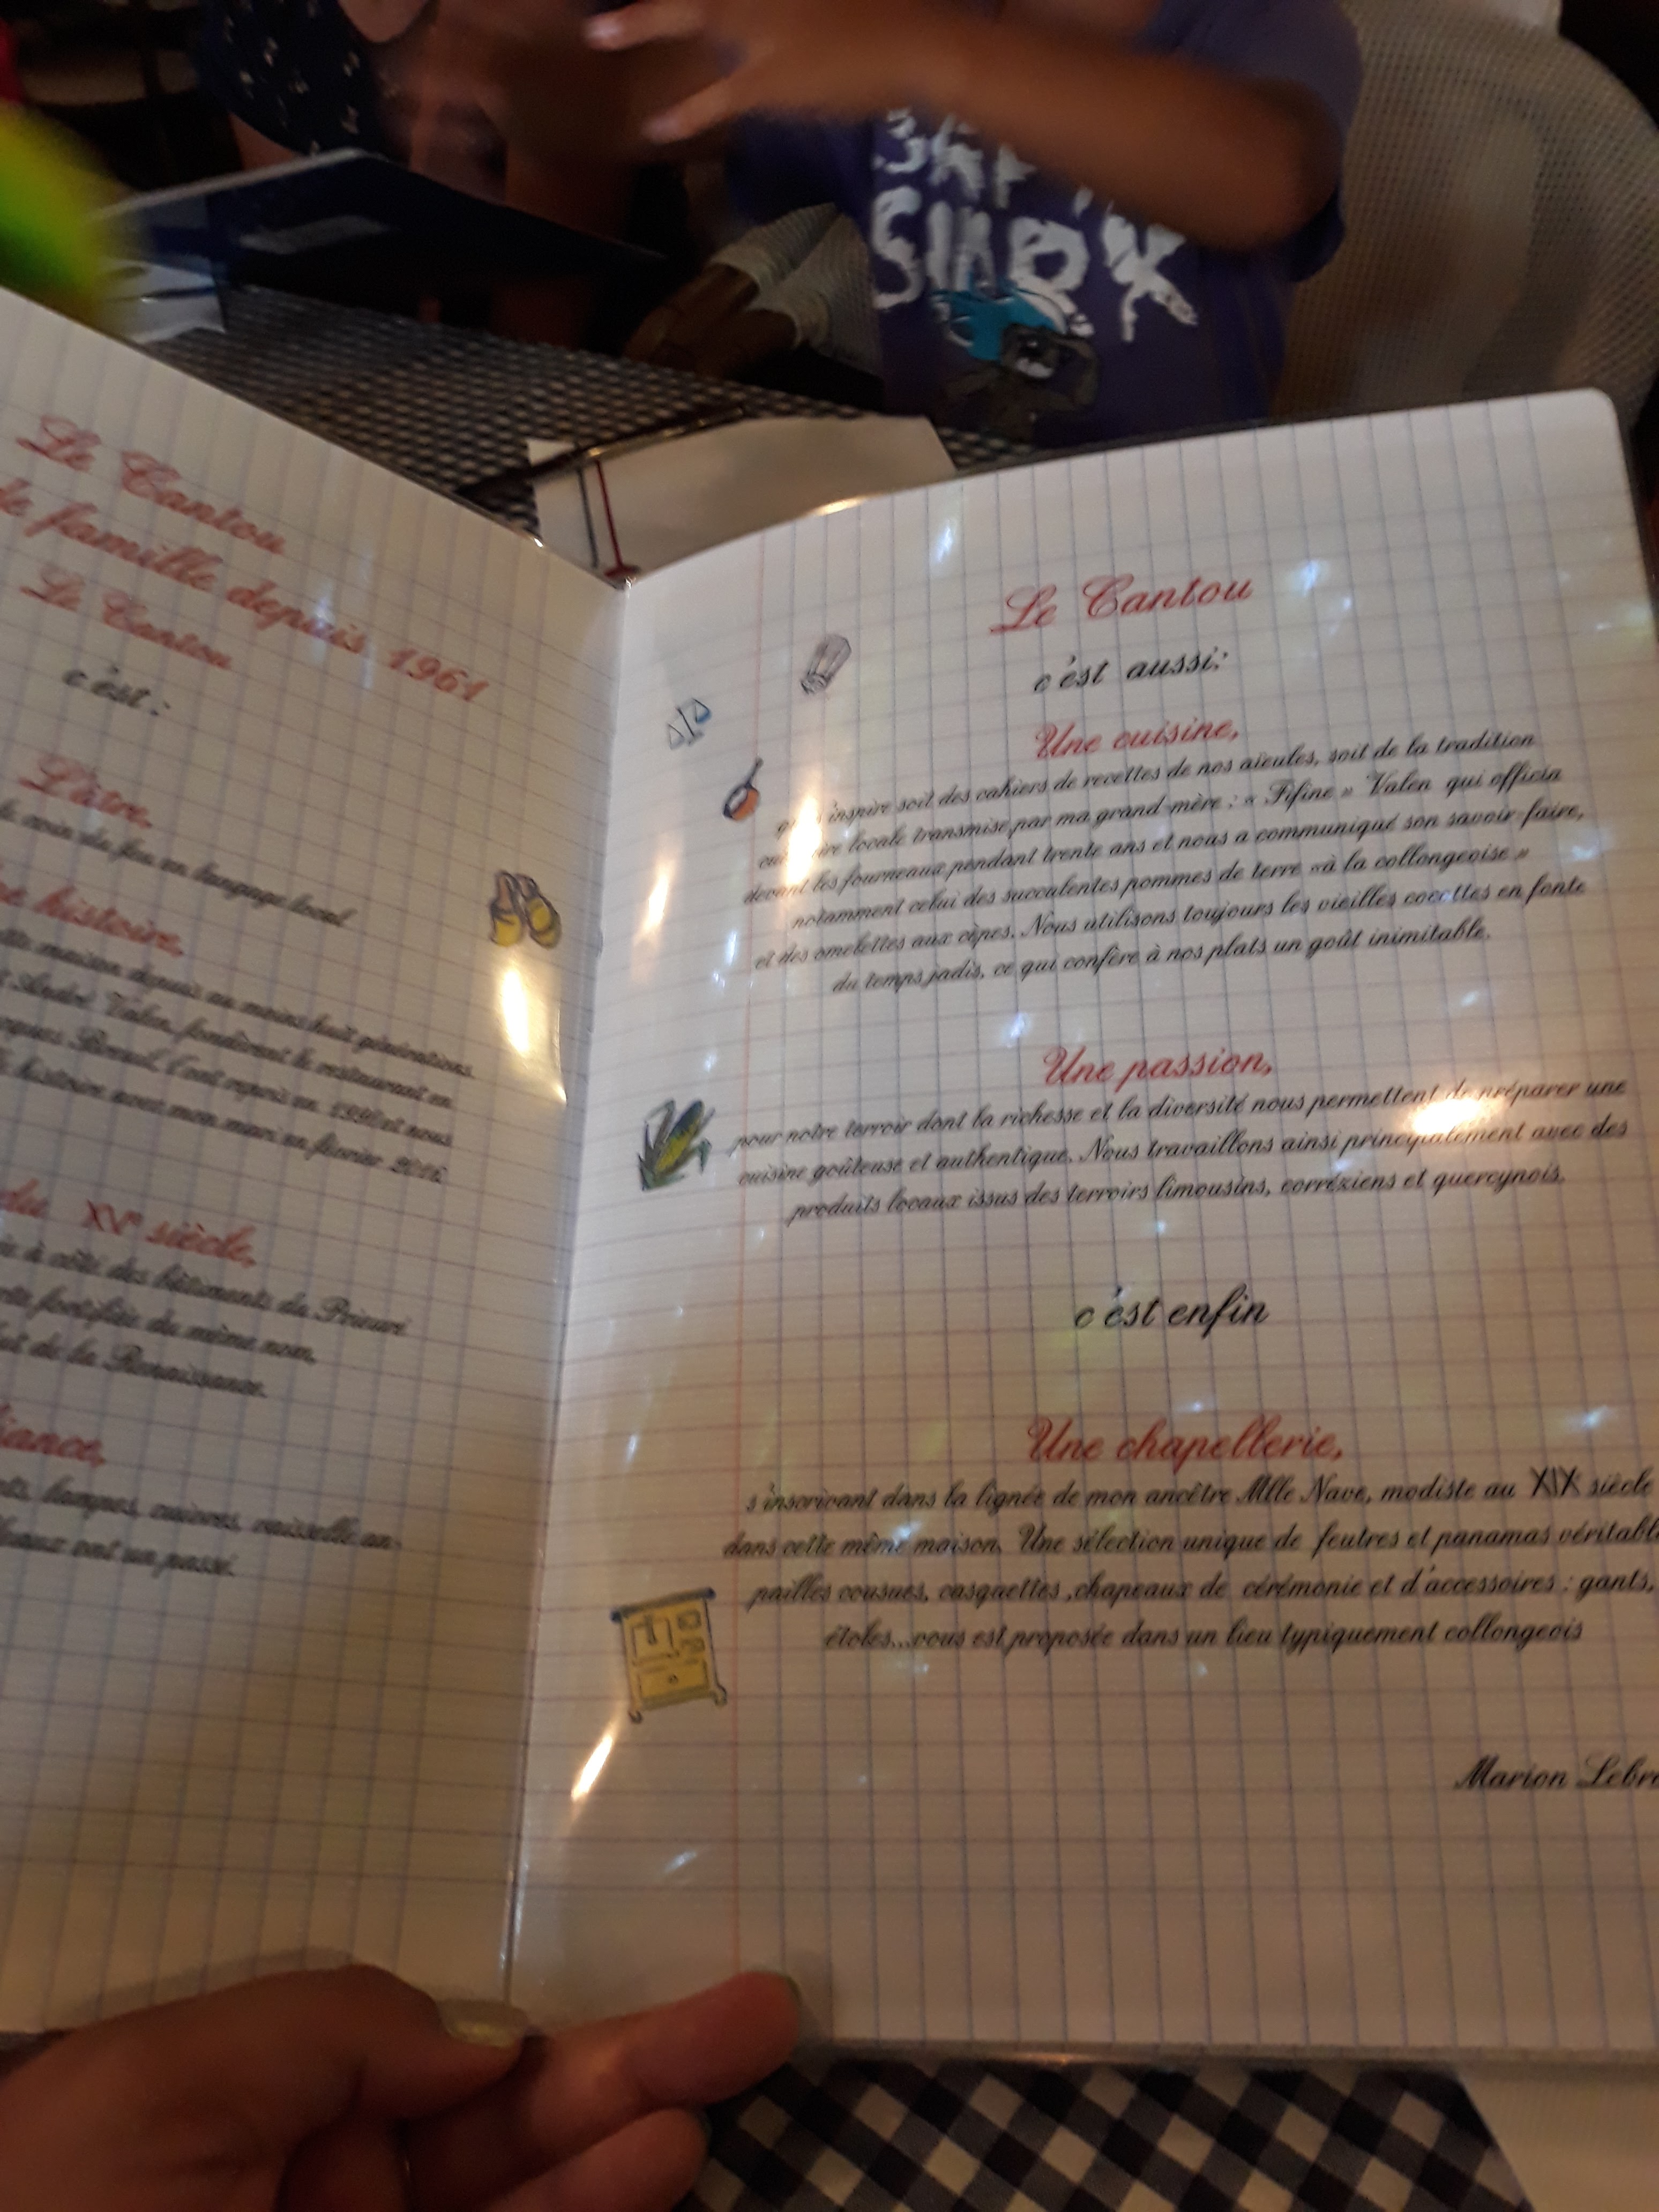 SHARK
Le Cantou
de famille depuis 1961
Le Cantou
c'est :
L'âtre,
le coin du feu en langage local
histoire,
maison depuis au moins huit générations.
André Valen, fondèrent le restaurant en
l'ont repris en 1990 et nous
histoire avec mon mari en février 2016.
du XVe siècle,
à côté des bâtiments du Prieuré
fortifiée du même nom,
de la Renaissance.
lampes, cuivres, vaisselle an-
ont un passé.
Le Cantou
c'est aussi:
Une cuisine,
inspire soit des cahiers de recettes de nos aïeules, soit de la tradition
locale transmise par ma grand-mère : « Fifine » Valen qui officia
devant les fourneaux pendant trente ans et nous a communiqué son savoir-faire,
notamment celui des succulentes pommes de terre «à la collongeoise »
et des omelettes aux cèpes. Nous utilisons toujours les vieilles cocottes en fonte
du temps jadis, ce qui confère à nos plats un goût inimitable.
Une passion,
pour notre terroir dont la richesse et la diversité nous permettent de préparer une
cuisine goûteuse et authentique. Nous travaillons ainsi principalement avec des
produits locaux issus des terroirs limousins, corréziens et quercynois.
c'est enfin
Une chapellerie,
s'inscrivant dans la lignée de mon ancêtre Mlle Nave, modiste au XIX siècle
dans cette même maison. Une sélection unique de feutres et panamas véritabl
pailles cousues, casquettes ,chapeaux de cérémonie et d'accessoires : gants,
étoles...vous est proposée dans un lieu typiquement collongeois
Marion Lebr